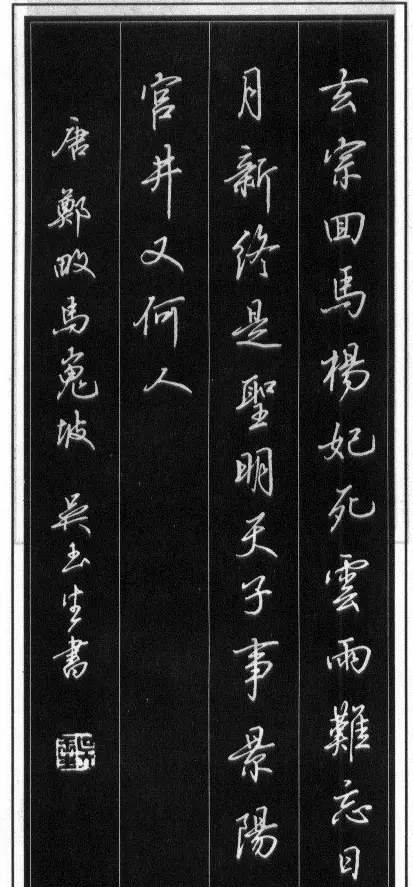 玄宗回馬楊妃死雲雨難忘日
月新終是聖明天子事景陽
宮井又何人
唐鄭畋馬嵬坡 吳玉生書